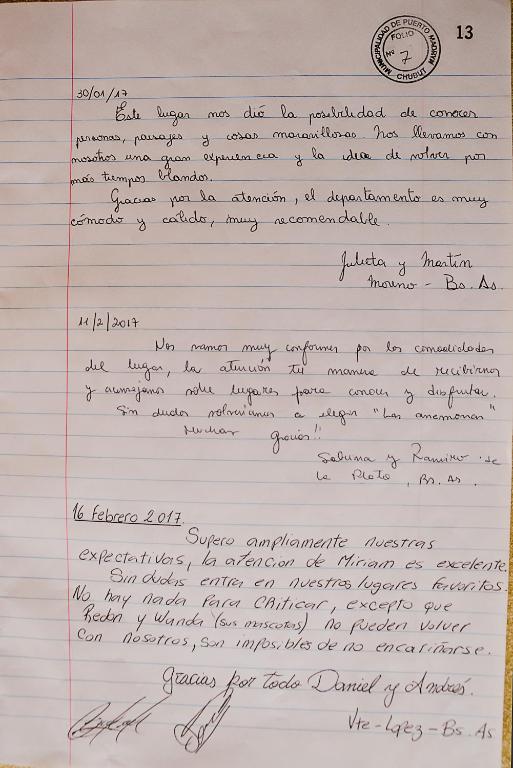 MUNICIPALIDAD DE PUERTO MADRYN
FOLIO
Nº 7
CHUBUT
13
30/01/17
Este lugar nos dió la posibilidad de conocer
personas, paisajes y cosas maravillosas. Nos llevamos con
nosotros una gran experiencia y la idea de volver por
más tiempos blandos.
Gracias por la atención, el departamento es muy
cómodo y cálido, muy recomendable.
Julieta y Martín
Moreno - Bs. As.
11/2/2017
Nos vamos muy conformes por las comodidades
del lugar, la atención tu manera de recibirnos
y aconsejarnos sobre lugares para conocer y disfrutar.
Sin dudas volveriamos a elegir "Las anemonas"
Muchas gracias!!
Sabrina y Ramiro de
La Plata, Bs. As.
16 Febrero 2017.
Supero ampliamente nuestras
expectativas, la atencion de Miriam es excelente.
Sin dudas entra en nuestros lugares favoritos.
No hay nada para criticar, excepto que
Redon y Wanda (sus mascotas) no pueden volver
con nosotros, son imposibles de no encariñarse.
Gracias por todo Daniel y Andrés.
Vte-Lopez-Bs. As